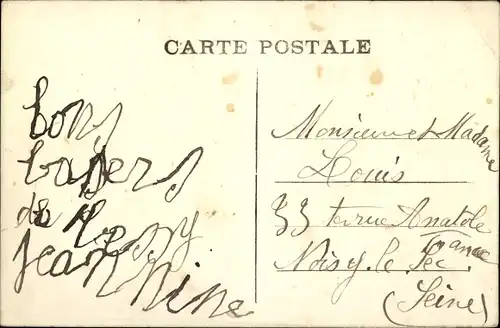 CARTE POSTALE
bons
baisers
de Rosny
Jeannine
Monsieur et Madame
Louis
33 ter rue Anatole
France
Noisy-le-Sec
(Seine)